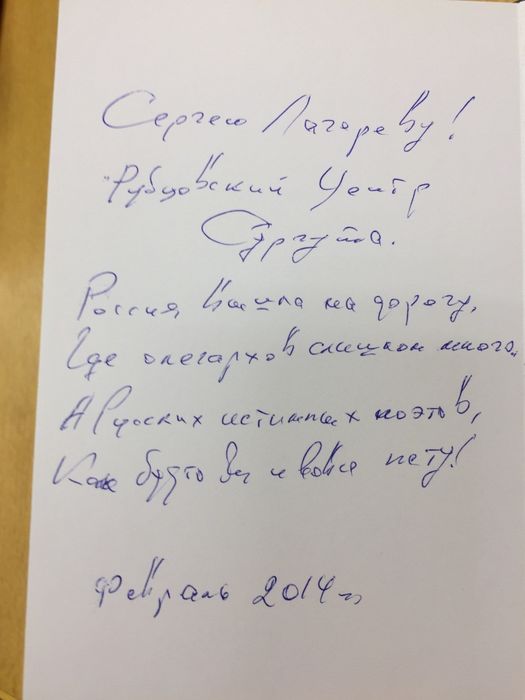 Сергею Лагореву!
"Рубцовский Центр
Сургута.
Россия, вышла на дорогу,
Где олегархов слишком много,
А Русских истинных поэтов,
Как будто бы и вовсе нету!
Февраль 2014 г.